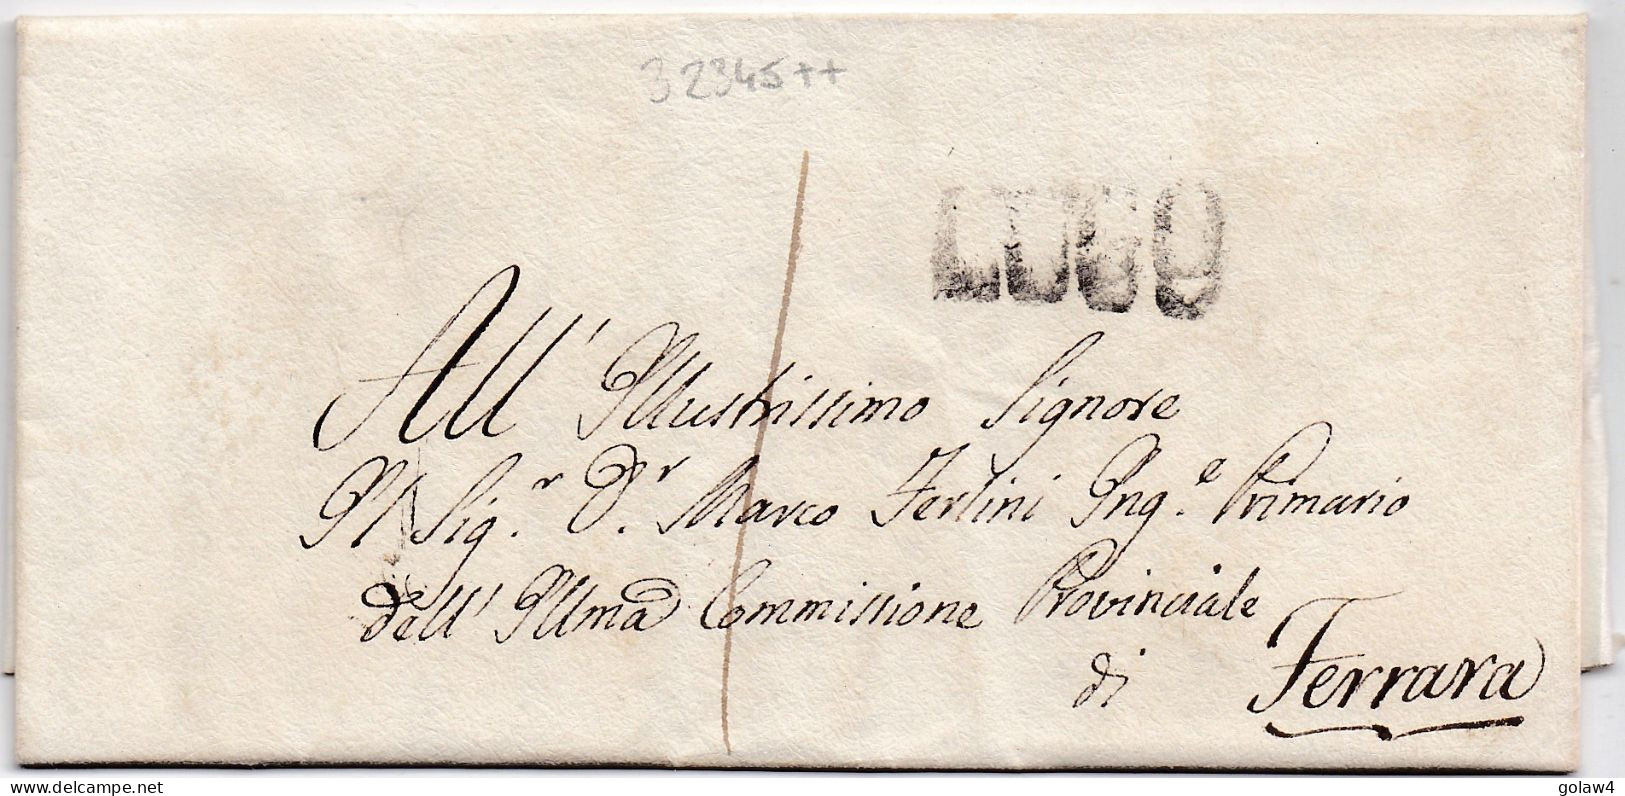 32345++
LUGO
All' Illustrissimo Signore
Il Sig.r D.r Marco Ferlini Ing.e Primario
dell' Illma Commissione Provinciale
di Ferrara
delcampe.net
golaw4